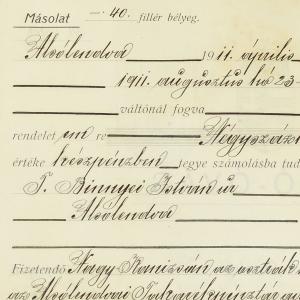 Másolat —. 40. fillér bélyeg.
Alsólendva 1911. április
1911. augusztus hó 23-
váltónál fogva
rendelet em re Négyszáz
értéke készpénzben tegye számolásba tud
T. Binnyei István úr
Alsólendva
Fizetendő Nagy Kanizsán az osztrák
az Alsólendvai Takarékpénztár